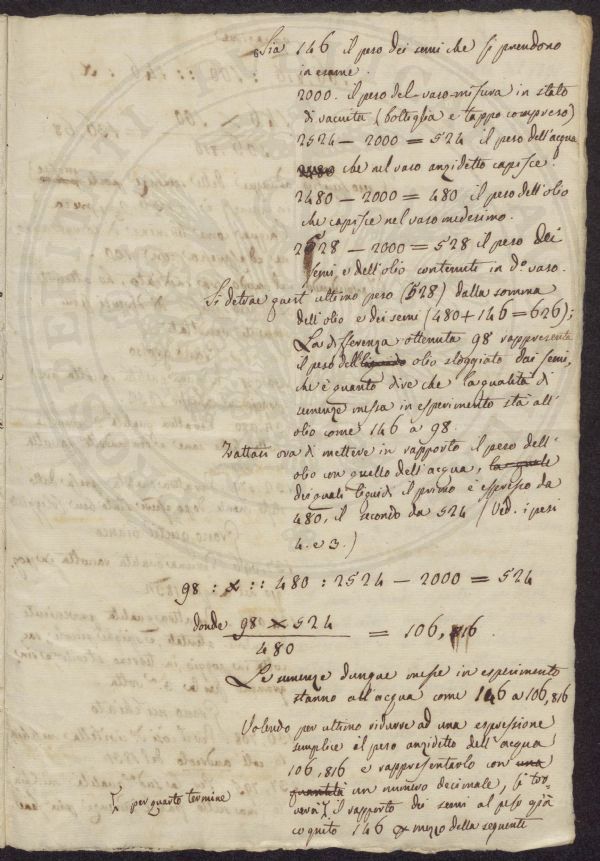 Sia 146 il peso dei semi che si prendono
in esame.
2000. il peso del vaso-misura in stato
di vacuità (bottiglia e tappo compreso)
2524 - 2000 = 524 il peso dell'acqua
che nel vaso anzidetto capisce.
2480 - 2000 = 480 il peso dell'olio
che capisce nel vaso medesimo.
2528 - 2000 = 528 il peso dei
semi e dell'olio contenuti in do vaso.
Si detrae quest'ultimo peso (528) dalla somma
dell'olio e dei semi (480 + 146 = 626);
La differenza ottenuta 98 rappresenta
il peso dell'liquido olio sloggiato dai semi,
che è quanto dire che la qualità di
semenze messa in esperimento stà all'
olio come 146 a 98.
Trattasi ora di mettere in rapporto il peso dell'
olio con quello dell'acqua, la quale
dei quali liquidi il primo è espresso da
480, il secondo da 524 (Ved. i pesi
4. e 3.)
98 : x :: 480 : 2524 - 2000 = 524
donde 98 × 524
480
= 106,816.
Le semenze dunque messe in esperimento
stanno all'acqua come 146 a 106,816
Volendo per ultimo ridurre ad una espressione
semplice il peso anzidetto dell'acqua
106,816 e rappresentarlo con una
quantità un numero decimale, si tro-
verà il rapporto dei semi al peso già
per quarto termine
cognito 146 a mezzo della seguente